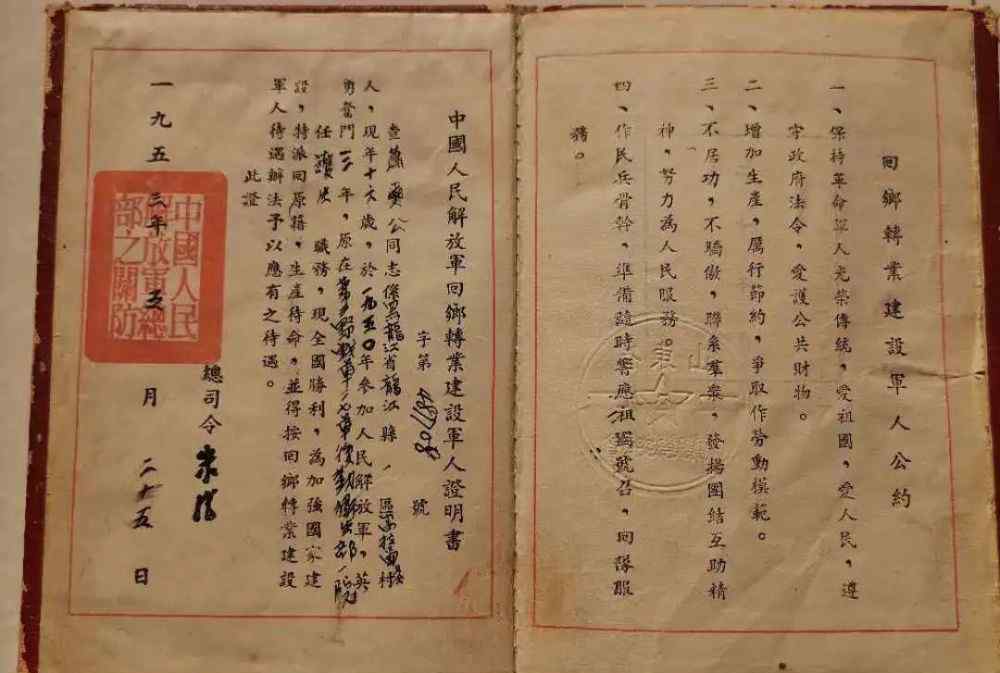 回鄉轉業建設軍人公約
一、保持革命軍人光榮傳統，愛祖國，愛人民，遵
守政府法令，愛護公共財物。
二、增加生產，厲行節約，爭取作勞動模範。
三、不居功，不驕傲，聯系羣衆，發揚團結互助精
神，努力為人民服務。
四、作民兵骨幹，準備隨時響應祖國號召，回隊服
務。
山東
中國人民解放軍回鄉轉業建設軍人證明書
字第 號
查蕭 公同志係黑龍江省龍江縣 區 村
人，現年十六歲，於一九五〇年參加人民解放軍，英
勇奮鬥三年，原在第 野戰軍 軍後勤
任 職務，現全國勝利，為加強國家建
設，特派回原籍，生產待命，並得按回鄉轉業建設
軍人待遇辦法予以應有之待遇。
此證
總司令 朱德
一九五三年五月二十五日
中國人民
解放軍總
部之關防